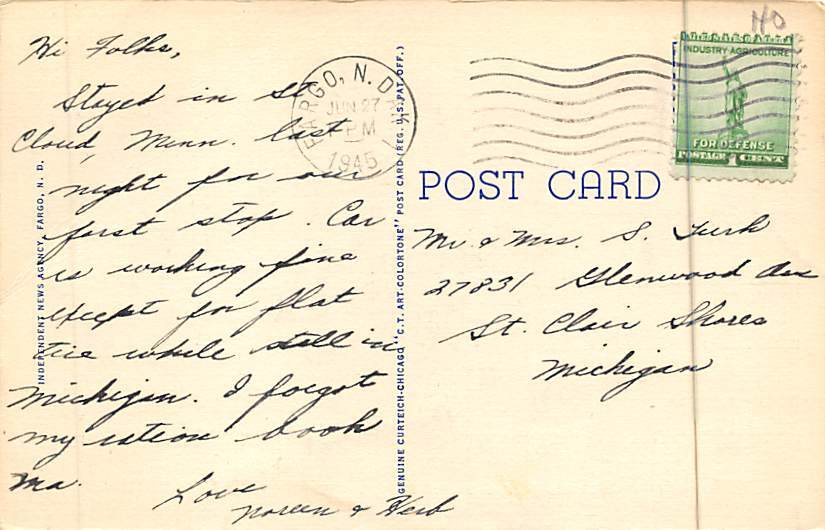 Hi Folks,
Stayed in St
Cloud, Minn. last
night for our
first stop. Car
is working fine
except for flat
tire while still in
Michigan. I forgot
my ration book
Ma.
Love
Noreen & Herb
INDEPENDENT NEWS AGENCY, FARGO, N. D.
GENUINE CURTEICH-CHICAGO "C.T. ART-COLORTONE" POST CARD (REG. U.S. PAT. OFF.)
FARGO, N. D.
JUN 27
PM
1945
POST CARD
NO
INDUSTRY AGRICULTURE
FOR DEFENSE
POSTAGE 1 CENT
Mr. & Mrs. S. Turk
27831 Glenwood Ave
St. Clair Shores
Michigan